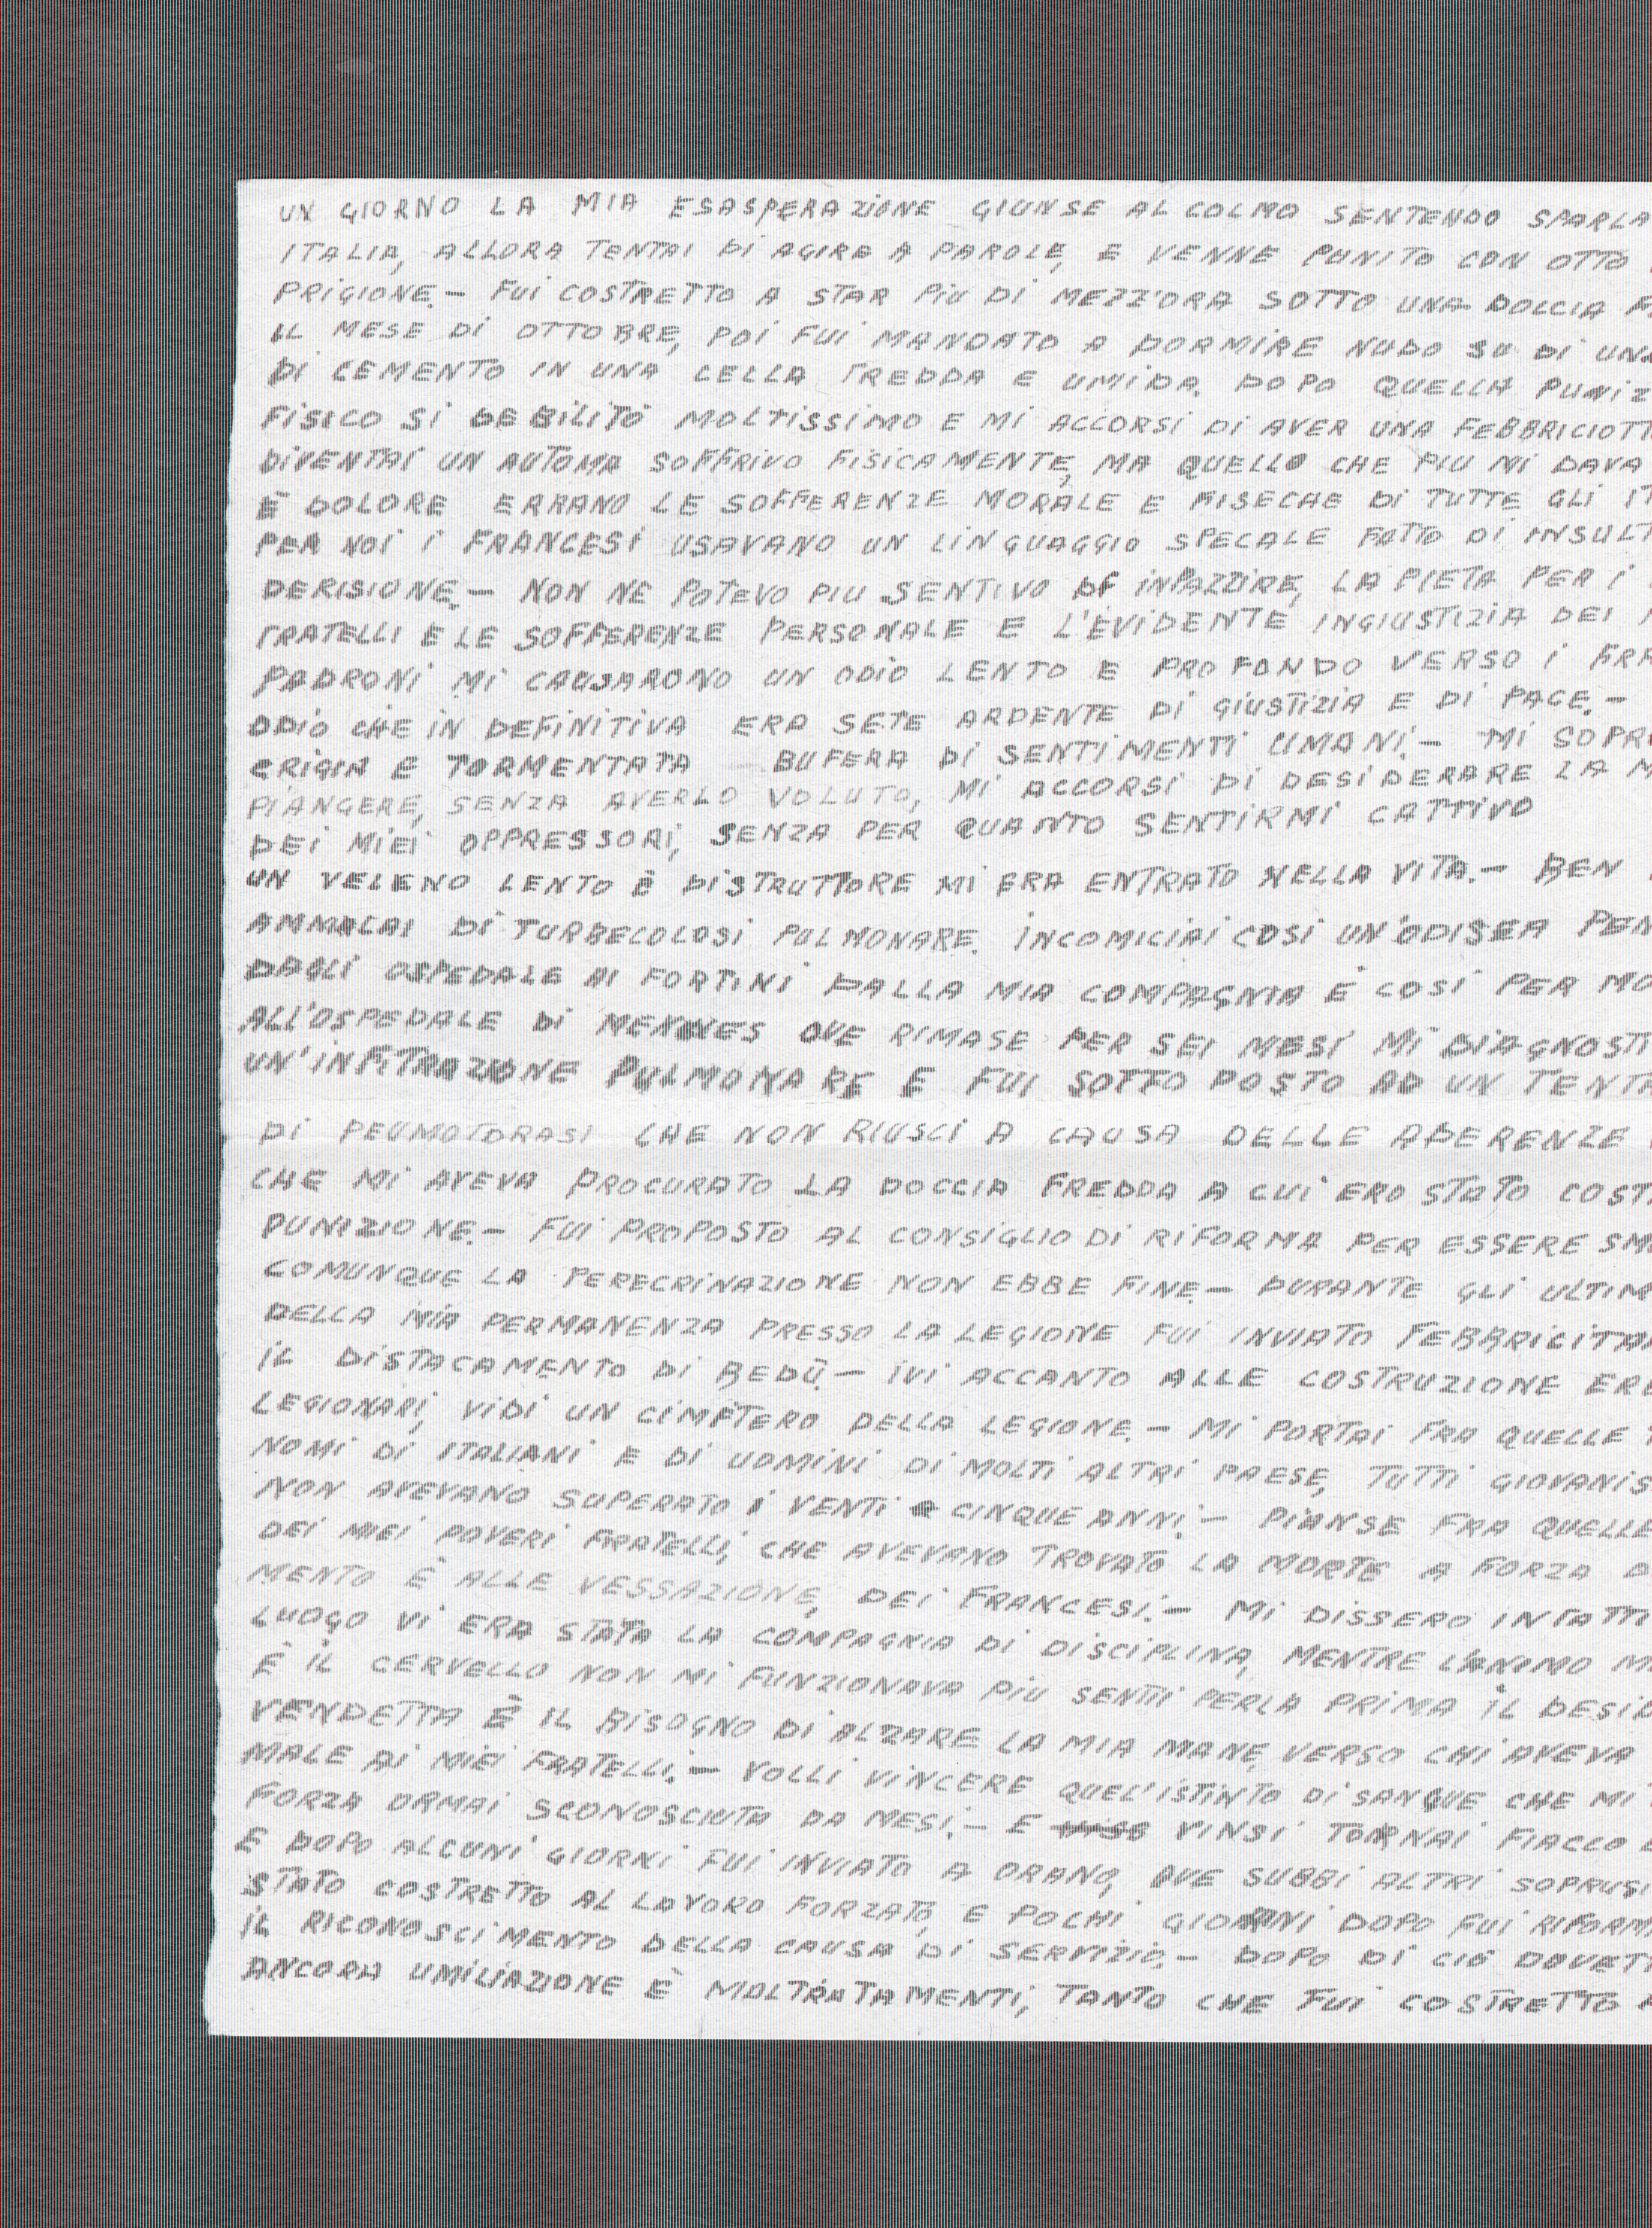 UN GIORNO LA MIA ESASPERAZIONE GIUNSE AL COLMO SENTENDO SPARLA
ITALIA, ALLORA TENTAI DI AGIRE A PAROLE, E VENNE PUNITO CON OTTO
PRIGIONE.- FUI COSTRETTO A STAR PIU DI MEZZ'ORA SOTTO UNA DOCCIA
IL MESE DI OTTOBRE, POI FUI MANDATO A DORMIRE NUDO SU DI UNA
DI CEMENTO IN UNA CELLA FREDDA E UMIDA. DOPO QUELLA PUNIZ
FISICO SI DEBILITÓ MOLTISSIMO E MI ACCORSI DI AVER UNA FEBBRICIOTT
DIVENTAI UN AUTOMA SOFFRIVO FISICAMENTE, MA QUELLO CHE PIU MI DAVA
È DOLORE ERRANO LE SOFFERENZE MORALE E FISECHE DI TUTTE GLI IT
PER NOI I FRANCESI USAVANO UN LINGUAGGIO SPECALE FATTO DI INSULT
DERISIONE.- NON NE POTEVO PIU SENTIVO DI INPAZZIRE, LA PIETA PER I
FRATELLI E LE SOFFERENZE PERSONALE E L'EVIDENTE INGIUSTIZIA DEI
PADRONI MI CAUSARONO UN ODIO LENTO E PROFONDO VERSO I FRA
ODIO CHE IN DEFINITIVA ERA SETE ARDENTE DI GIUSTIZIA E DI PACE.-
CRIGIA E TORMENTATA BUFERA DI SENTIMENTI UMANI.- MI SOPR
PIANGERE, SENZA AVERLO VOLUTO, MI ACCORSI DI DESIDERARE LA M
DEI MIEI OPPRESSORI, SENZA PER QUANTO SENTIRMI CATTIVO
UN VELENO LENTO È DISTRUTTORE MI ERA ENTRATO NELLA VITA.- BEN
AMMALAI DI TURBECOLOSI PULMONARE. INCOMICIAI COSI UN'ODISEA PEN
DAGLI OSPEDALE AI FORTINI DALLA MIA COMPAGNIA È COSI PER MO
ALL'OSPEDALE DI OVE RIMASE PER SEI MESI MI DIAGNOSTI
UN'INFITRAZIONE PULMONARE E FUI SOTTO POSTO AD UN TENTA
DI PEUMOTORASI CHE NON RIUSCI A CAUSA DELLE ADERENZE
CHE MI AVEVA PROCURATO LA DOCCIA FREDDA A CUI ERO STATO COST
PUNIZIONE.- FUI PROPOSTO AL CONSIGLIO DI RIFORMA PER ESSERE SM
COMUNQUE LA PERECRINAZIONE NON EBBE FINE.- DURANTE GLI ULTIM
DELLA MIA PERMANENZA PRESSO LA LEGIONE FUI INVIATO FEBBRICITA
IL DISTACAMENTO DI BEDÜ.- IVI ACCANTO ALLE COSTRUZIONE ER
LEGIONARI, VIDI UN CIMETERO DELLA LEGIONE.- MI PORTAI FRA QUELLE
NOMI DI ITALIANI E DI UOMINI DI MOLTI ALTRI PAESE, TUTTI GIOVANIS
NON AVEVANO SUPERATO I VENTI CINQUE ANNI.- PIANSE FRA QUELLE
DEI MIEI POVERI FRATELLI, CHE AVEVANO TROVATO LA MORTE A FORZA D
MENTO È ALLE VESSAZIONE, DEI FRANCESI.- MI DISSERO INFATTI
LUOGO VI ERA STATA LA COMPAGNIA DI DISCIPLINA, MENTRE L'ANIMO M
È IL CERVELLO NON MI FUNZIONAVA PIU SENTII PERLA PRIMA IL DESID
VENDETTA È IL BISOGNO DI ALZARE LA MIA MANE, VERSO CHI AVEVA
MALE AI MIEI FRATELLI.- VOLLI VINCERE QUEL'ISTINTO DI SANGUE CHE MI
FORZA ORMAI SCONOSCIUTA DA MESI.- E VINSI TORNAI FIACCO
E DOPO ALCUNI GIORNI FUI INVIATO A ORANO, OVE SUBBI ALTRI SOPRUSI
STATO COSTRETTO AL LAVORO FORZATO, E POCHI GIORNI DOPO FUI RIFORMA
IL RICONOSCIMENTO DELLA CAUSA DI SERVIZIO.- DOPO DI CIÓ DOVETT
ANCORA UMILIAZIONE È MALTRATAMENTI, TANTO CHE FUI COSTRETTO